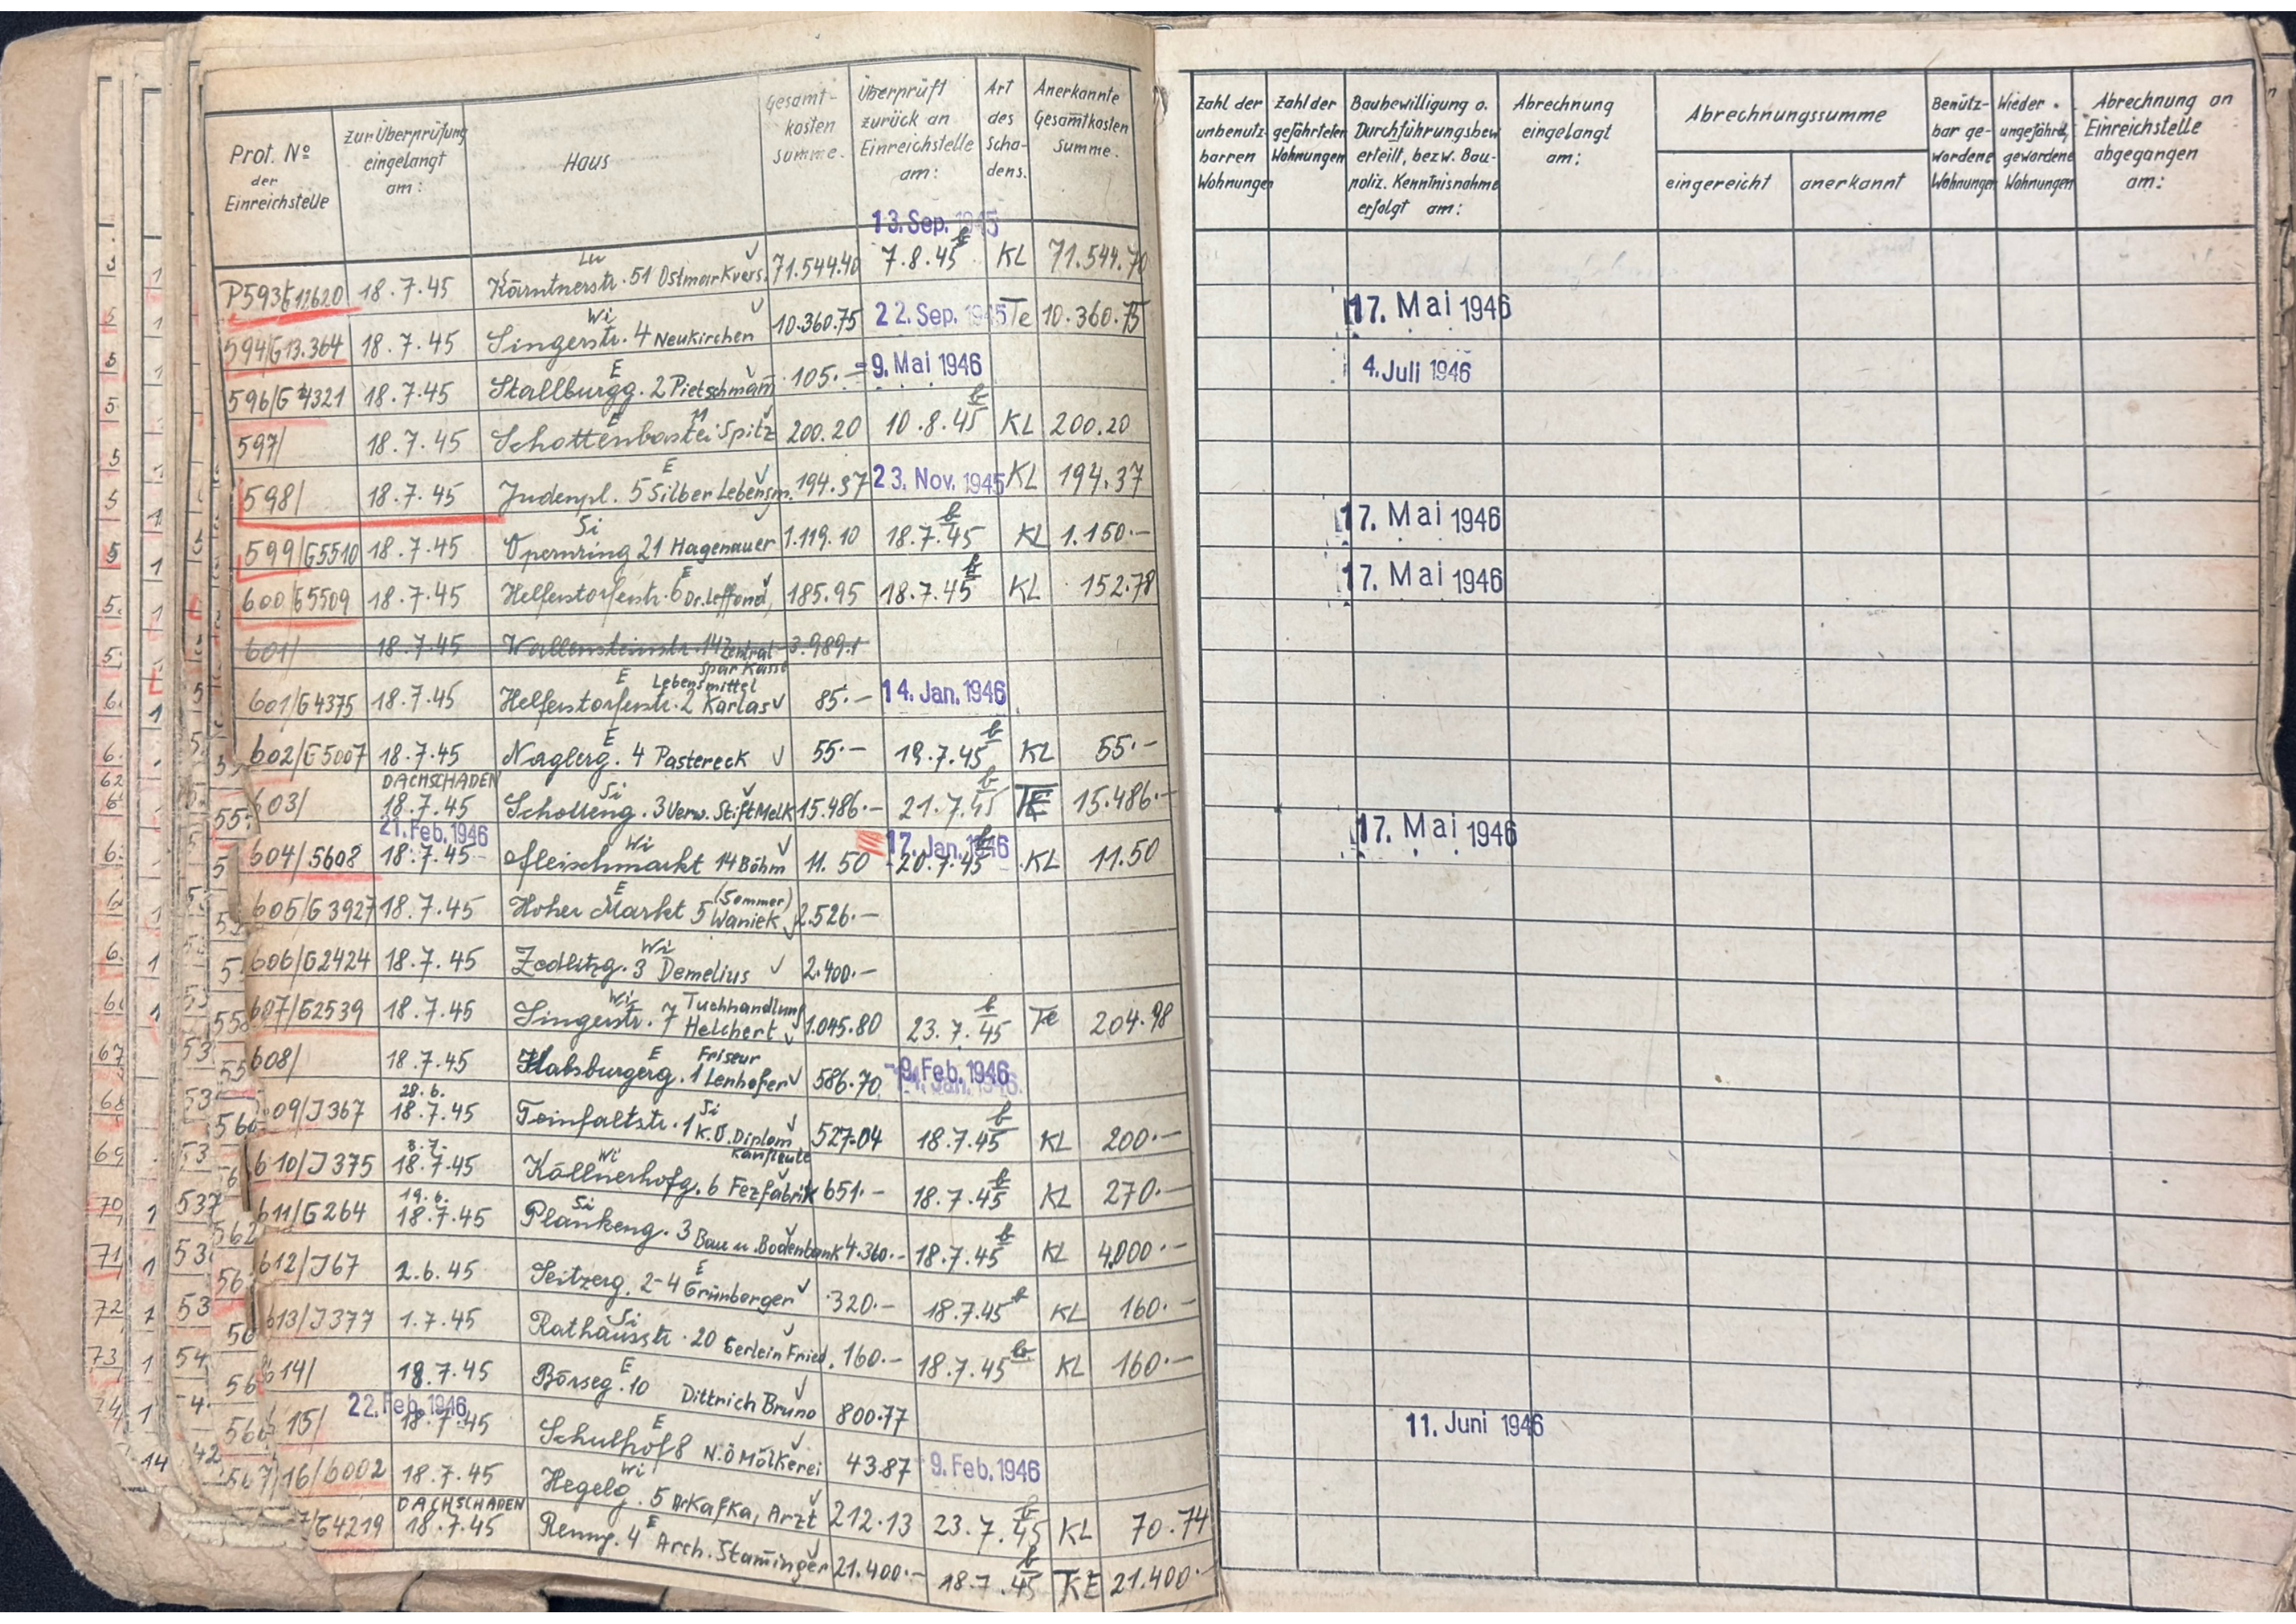 Prot. Nº der Einreichstelle
Zur Überprüfung eingelangt am:
Haus
Gesamt-kosten summe.
Überprüft zurück an Einreichstelle am:
Art des Scha-dens.
Anerkannte Gesamtkosten Summe.
Zahl der unbenutz-barren Wohnungen
Zahl der gefährteten Wohnungen
Baubewilligung o. Durchführungsbew. erteilt, bezw. Bau-poliz. Kenntnisnahme erfolgt am:
Abrechnung eingelangt am:
Abrechnungssumme
eingereicht
anerkannt
Benütz-bar ge-wordene Wohnungen
Wieder ungefährd. gewordene Wohnungen
Abrechnung an Einreichstelle abgegangen am:
13. Sep. 1945
Lu
P593/G12620 18.7.45 Kärntnerstr. 51 Ostmarkvers. 71.544.40 7.8.45 KL 71.544.70
Wi
594/G13.364 18.7.45 Singerstr. 4 Neukirchen 10.360.75 22. Sep. 1945 Te 10.360.75 17. Mai 1946
E
596/G4321 18.7.45 Stallburgg. 2 Pietschmam̄ 105.— 9. Mai 1946 4. Juli 1946
E
597/ 18.7.45 Schottenbastei Spitz 200.20 10.8.45 KL 200.20
E
598/ 18.7.45 Judenpl. 5 Silber Lebensm. 194.37 23. Nov. 1945 KL 194.37
Si
599/G5510 18.7.45 Opernring 21 Hagenauer 1.119.10 18.7.45 KL 1.150.— 17. Mai 1946
E
600/G5509 18.7.45 Helferstorferstr. 6 Dr. 185.95 18.7.45 KL 152.78 17. Mai 1946
601/ 18.7.45 Wallensteinstr. 14 Zentral-sparkasse 3.989.1
E Lebensmittel
601/G4375 18.7.45 Helferstorferstr. 2 Karlas 85.— 14. Jan. 1946
E
602/G5007 18.7.45 Naglerg. 4 Pastereck 55.— 19.7.45 KL 55.—
DACHSCHADEN Si
603/ 18.7.45 Schotteng. 3 Verw. Stift Melk 15.486.— 21.7.45 TE 15.486.—
21. Feb. 1946 Wi 17. Jan. 1946
604/5608 18.7.45 Fleischmarkt 14 Böhm 11.50 20.7.45 KL 11.50 17. Mai 1946
E (Sommer)
605/G3927 18.7.45 Hoher Markt 5 Waniek 2.526.—
Wi
606/G2424 18.7.45 Zedlitzg. 3 Demelius 2.400.—
Wi Tuchhandlung
607/G2539 18.7.45 Singerstr. 7 Helchert 1.045.80 23.7.45 Te 204.98
E Friseur
608/ 18.7.45 Habsburgerg. 1 Lenhofer 586.70 9. Feb. 1946
28.6. Si
609/J367 18.7.45 Teinfaltstr. 1 K.Ö. Diplom Kaufleute 527.04 18.7.45 KL 200.—
8.7. Wi
610/J375 18.7.45 Köllnerhofg. 6 Fezfabrik 651.— 18.7.45 KL 270.—
19.6. Si
611/G264 18.7.45 Plankeng. 3 Bau u. Bodenbank 4.360.— 18.7.45 KL 4000.—
E
612/J67 2.6.45 Seitzerg. 2-4 Grünberger 320.— 18.7.45 KL 160.—
Si
613/J377 1.7.45 Rathausstr. 20 Gerlein Fried. 160.— 18.7.45 KL 160.—
E
614/ 18.7.45 Börseg. 10 Dittrich Bruno 800.77
22. Feb. 1946 E
15/ 18.7.45 Schulhof 8 N.Ö Molkerei 43.87 9. Feb. 1946 11. Juni 1946
Wi
16/6002 18.7.45 Hegelg. 5 Dr Kafka, Arzt 212.13 23.7.45 KL 70.74
DACHSCHADEN E
7/G4219 18.7.45 Renng. 4 Arch. Stam̄inger 21.400.— 18.7.45 TKE 21.400.—